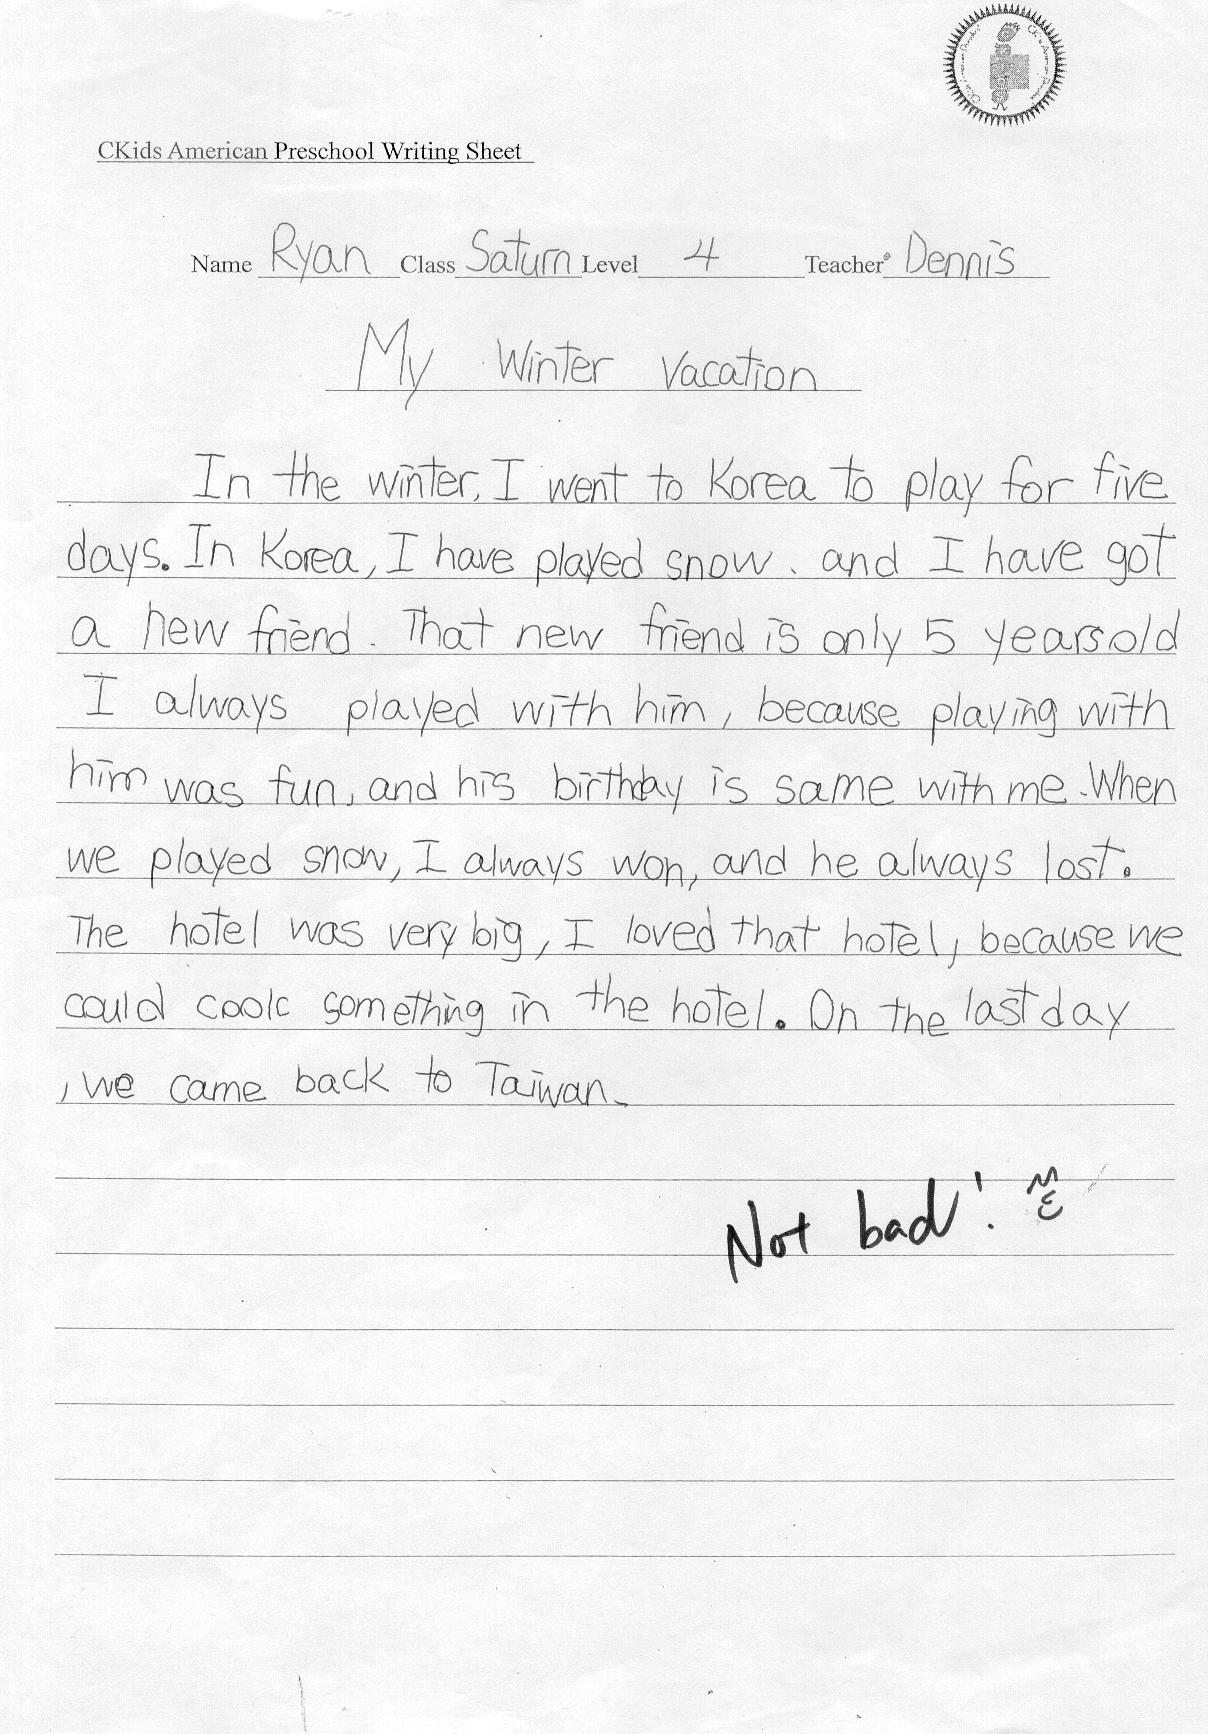 CKids American Preschool Writing Sheet
Name Ryan Class Saturn Level 4 Teacher Dennis
My Winter Vacation
In the winter, I went to Korea to play for five
days. In Korea, I have played snow. and I have got
a new friend. That new friend is only 5 years old
I always played with him, because playing with
him was fun, and his birthday is same with me. When
we played snow, I always won, and he always lost.
The hotel was very big, I loved that hotel, because we
could cook something in the hotel. On the last day
, we came back to Taiwan.
Not bad!